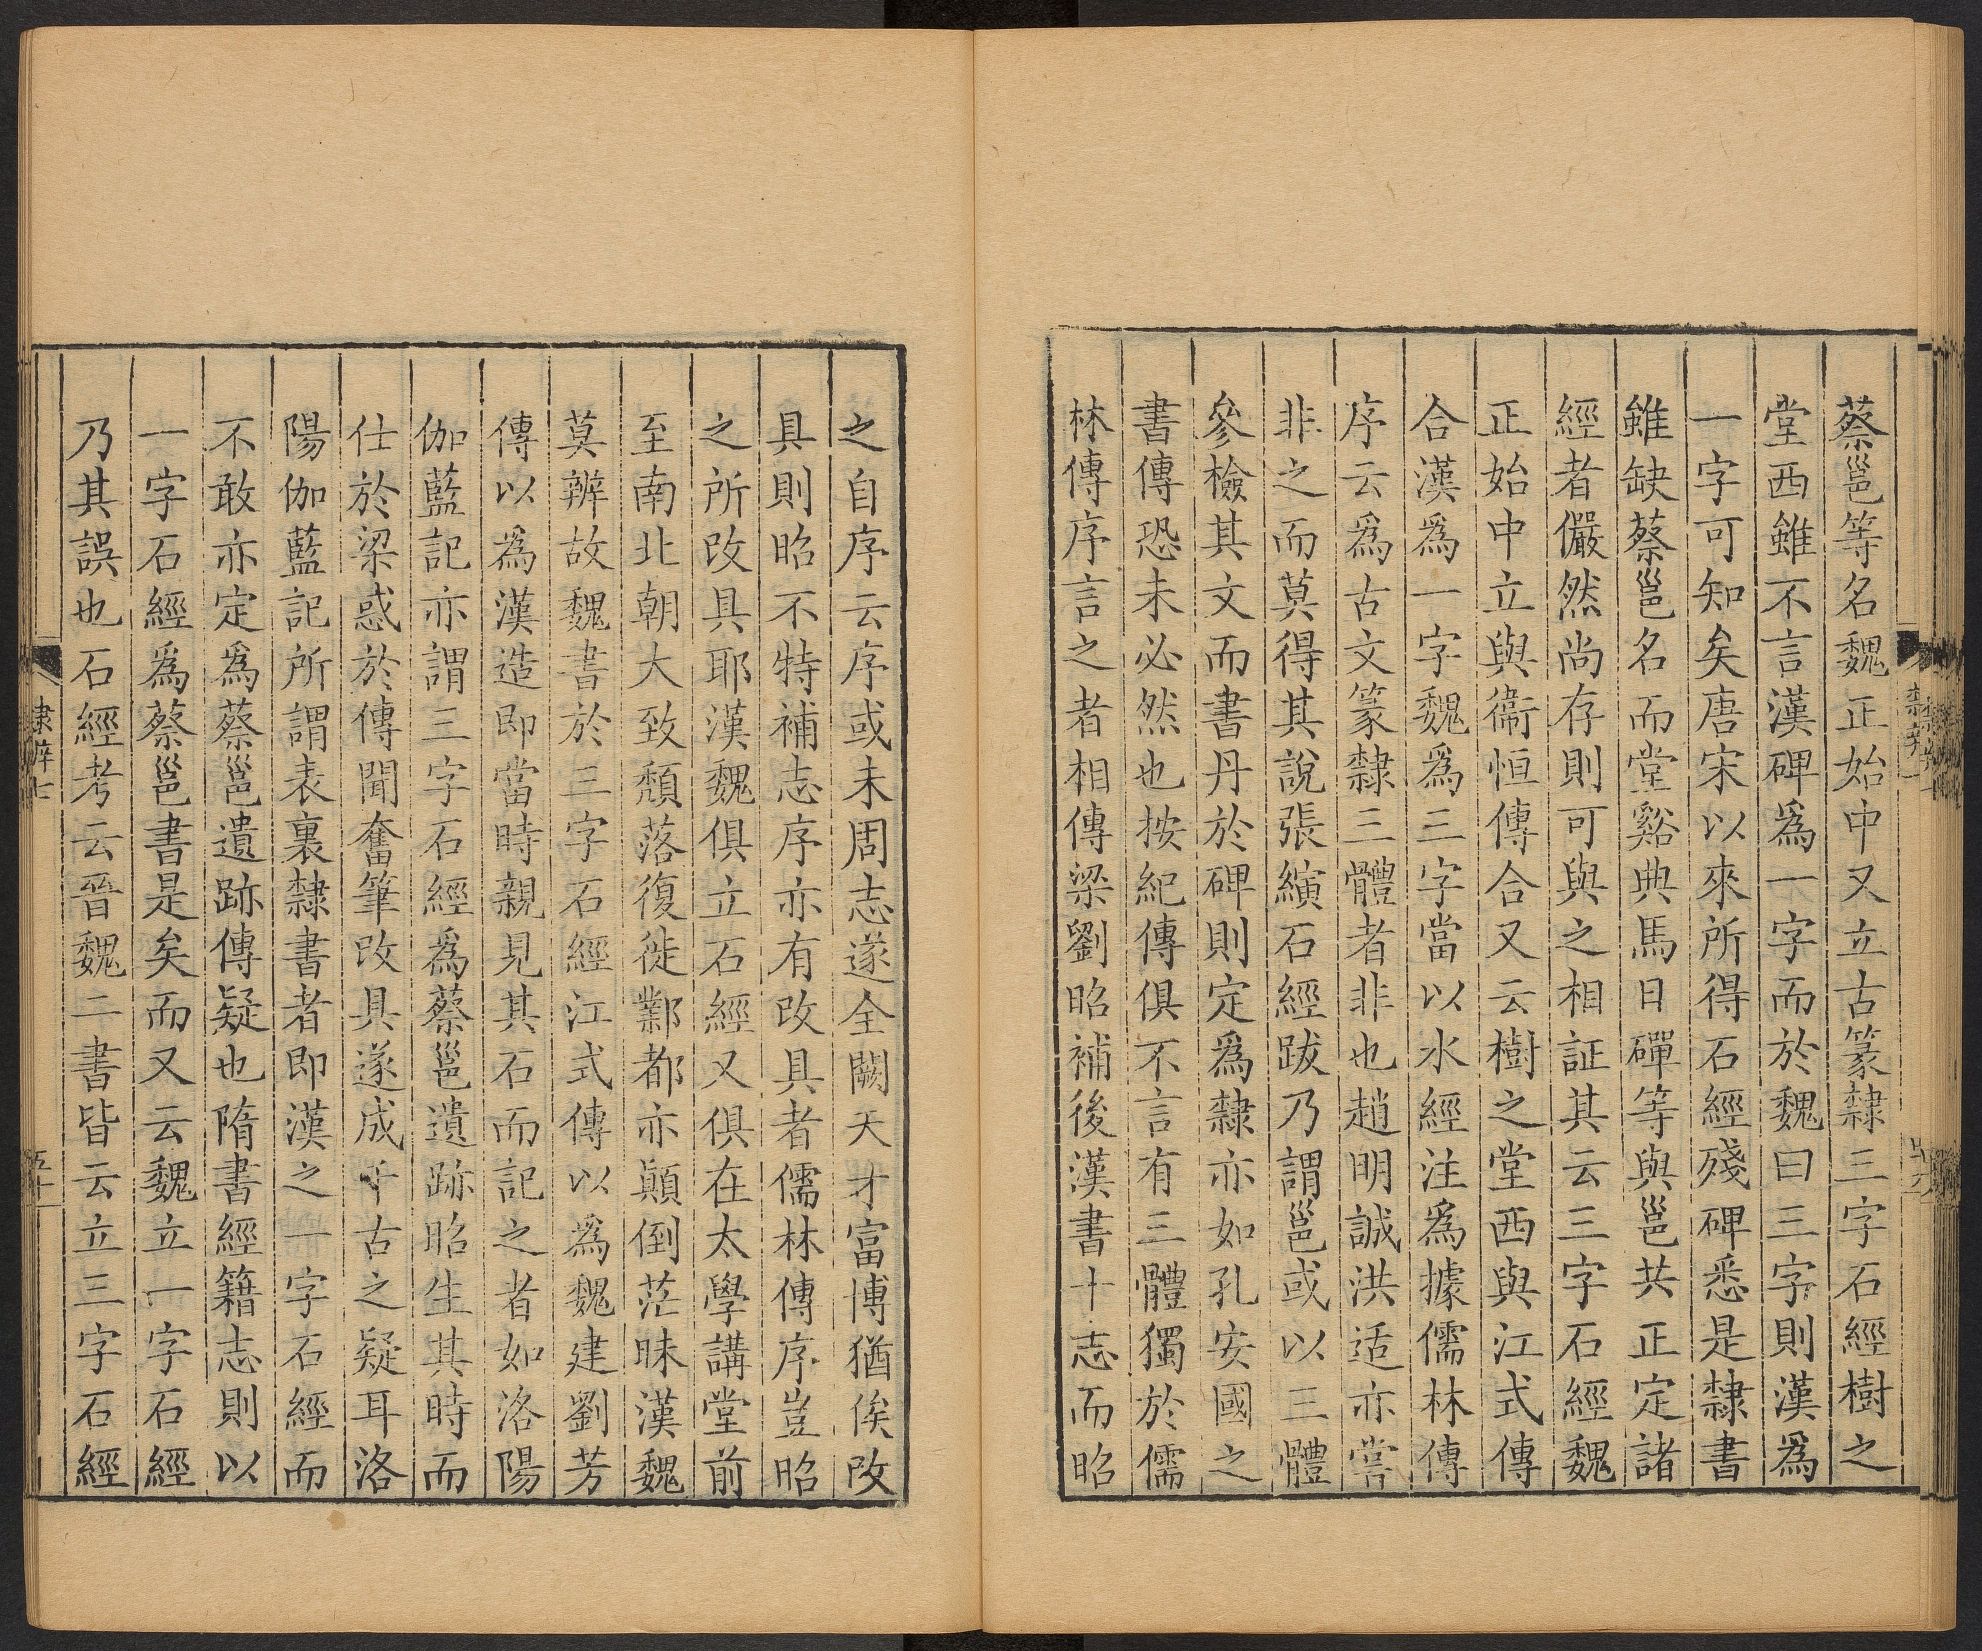 蔡邕等名魏正始中又立古篆隸三字石經樹之
堂西雖不言漢碑爲一字而於魏曰三字則漢爲
一字可知矣唐宋以來所得石經殘碑悉是隸書
雖缺蔡邕名而堂谿典馬日磾等與邕共正定諸
經者儼然尚存則可與之相証其云三字石經魏
正始中立與衞恒傳合又云樹之堂西與江式傳
合漢爲一字魏爲三字當以水經注爲據儒林傳
序云爲古文篆隸三體者非也趙明誠洪适亦嘗
非之而莫得其說張縯石經跋乃謂邕或以三體
參檢其文而書丹於碑則定爲隸亦如孔安國之
書傳恐未必然也按紀傳俱不言有三體獨於儒
林傳序言之者相傳梁劉昭補後漢書十志而昭
之自序云序或未周志遂全闕天才富博猶俟改
具則昭不特補志序亦有改具者儒林傳序豈昭
之所改具耶漢魏俱立石經又俱在太學講堂前
至南北朝大致頹落復徙鄴都亦顛倒茫昧漢魏
莫辨故魏書於三字石經江式傳以爲魏建劉芳
傳以爲漢造即當時親見其石而記之者如洛陽
伽藍記亦謂三字石經爲蔡邕遺跡昭生其時而
仕於梁惑於傳聞奮筆改具遂成千古之疑耳洛
陽伽藍記所謂表裏隸書者即漢之一字石經而
不敢亦定爲蔡邕遺跡傳疑也隋書經籍志則以
一字石經爲蔡邕書是矣而又云魏立一字石經
乃其誤也石經考云晉魏二書皆云立三字石經
隸辨七